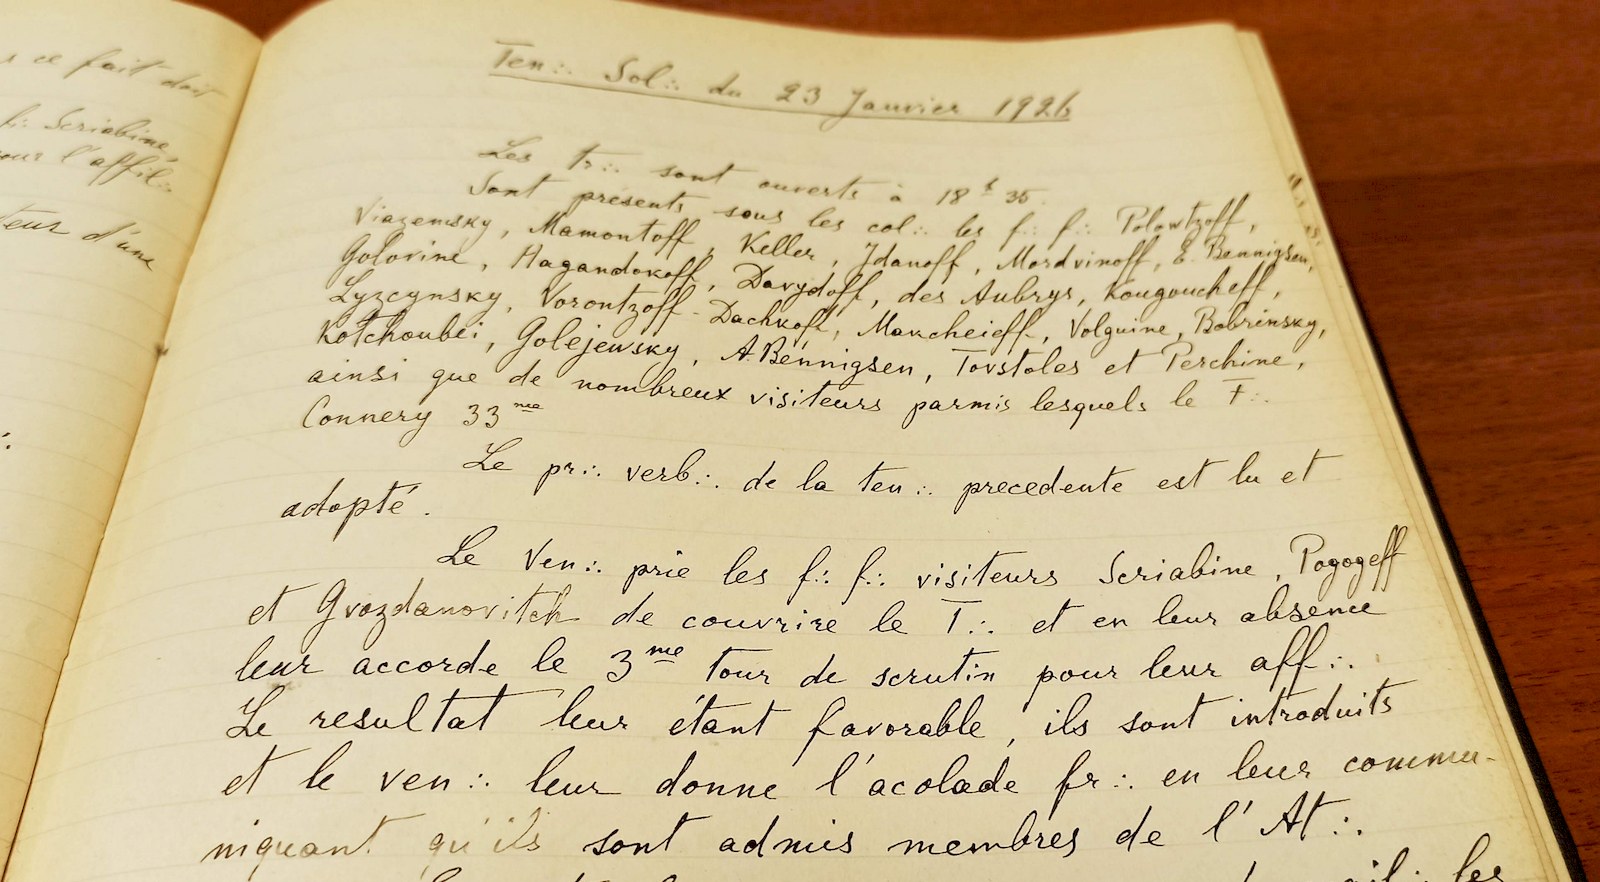 ce fait doit
f∴ Scriabine,
pour l'affil∴
teur d'une
Ten∴ Sol∴ du 23 Janvier 1926
Les tr∴ sont ouverts à 18 h 35.
Sont présents sous les col∴ les f∴ f∴ Polowtzoff,
Viazemsky, Mamontoff, Keller, Jdanoff, Mordvinoff, E. Bennigsen,
Golovine, Hagandokoff, Davydoff, des Aubrys, Kougoucheff,
Lyzcynsky, Vorontzoff-Dachkoff, Mancheieff, Volguine, Bobrinsky,
Kotchoubéi, Golejewsky, A. Bennigsen, Tovstoles et Perchine,
ainsi que de nombreux visiteurs parmis lesquels le F∴
Connery 33me
Le pr∴ verb∴ de la ten∴ precedente est lu et
adopté.
Le Ven∴ prie les f∴ f∴ visiteurs Scriabine, Pogogeff
et Gvozdanovitch de couvrire le T∴ et en leur absence
leur accorde le 3me tour de scrutin pour leur aff∴
Le resultat leur étant favorable, ils sont introduits
et le ven∴ leur donne l'acolade fr∴ en leur commu-
niquant qu'ils sont admis membres de l'At∴
les